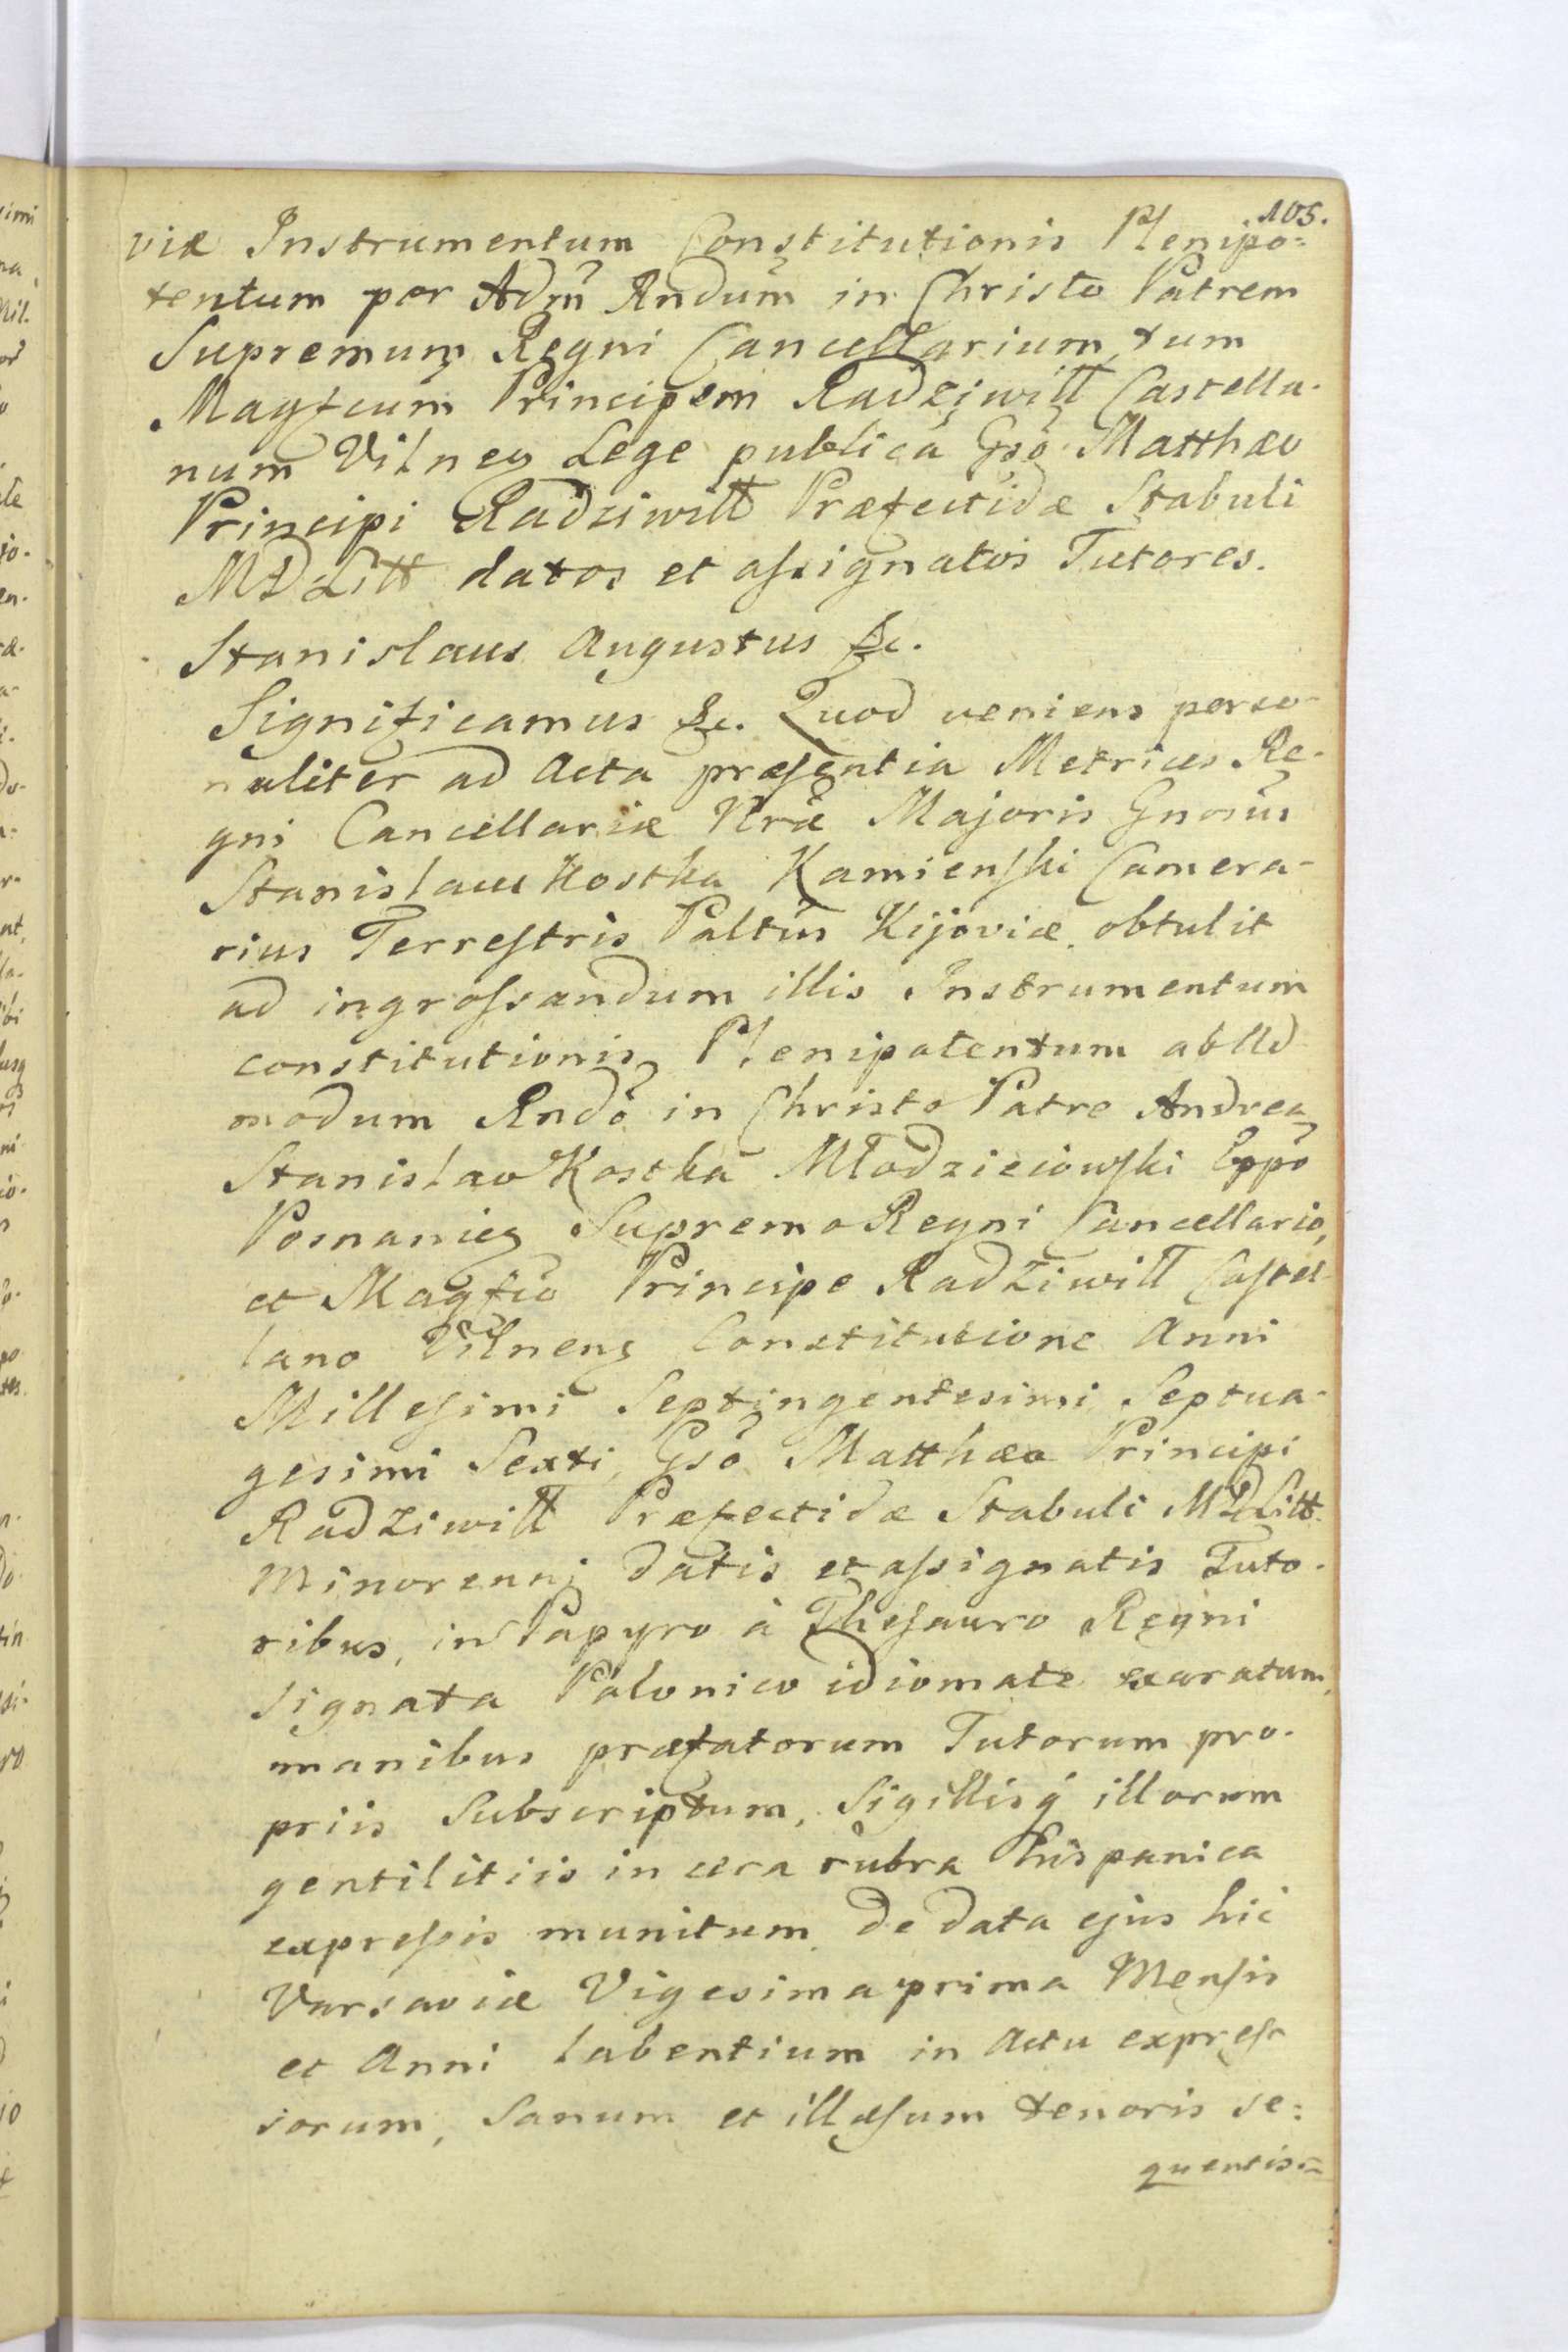 105.
viæ Instrumentum Constitutionis Plenipo=
tentum per Adm̃ Rndum̃ in Christo Patrem
Supremum Regni Cancellarium, tum
Magfcum̃ Principem Radziwiłł Castella-
num Vilneñ Lege publica Gsõ Matthæo
Principi Radziwiłł Præfectidæ Stabuli
MDLitt datos et assignatos Tutores.
Stanislaus Augustus &c.
Significamus &c. Quod veniens perso-
naliter ad Acta præsentia Metrices Re-
gni Cancellariæ Nræ̃ Majoris Gnosus̃
Stanislaus Kostka Kamienski Camera-
rius Terrestris Paltus̃ Kijoviæ, obtulit
ad ingrossandum illis Instrumentum
constitutionis Plenipotentum ab Ad-
modum Rndõ in Christo Patre Andrea
Stanislao Kostka Młodzieiowski Eppõ
Posnanieñ Supremo Regni Cancellario,
et Magfcõ Principe Radziwiłł Castel-
lano Vilneñs Constitutione Anni
Millesimi Septingentesimi Septua-
gesimi Sexti, Gsõ Matthæo Principi
Radziwiłł Præfectidæ Stabuli MDLitt.
Minorenni datis et assignatis Tuto-
ribus, in Papyro à Thesauro Regni
signata Polonico idiomate exaratum,
manibus præfatorum Tutorum pro-
priis Subscriptum, Sigillisq́ illorum
gentilitiis in cera rubra hispanica
expressis munitum de data ejus hic
Varsaviæ Vigesima prima Mensis
et Anni labentium in Actu expres-
sorum, Sanum et illæsum tenoris se=
quentis=